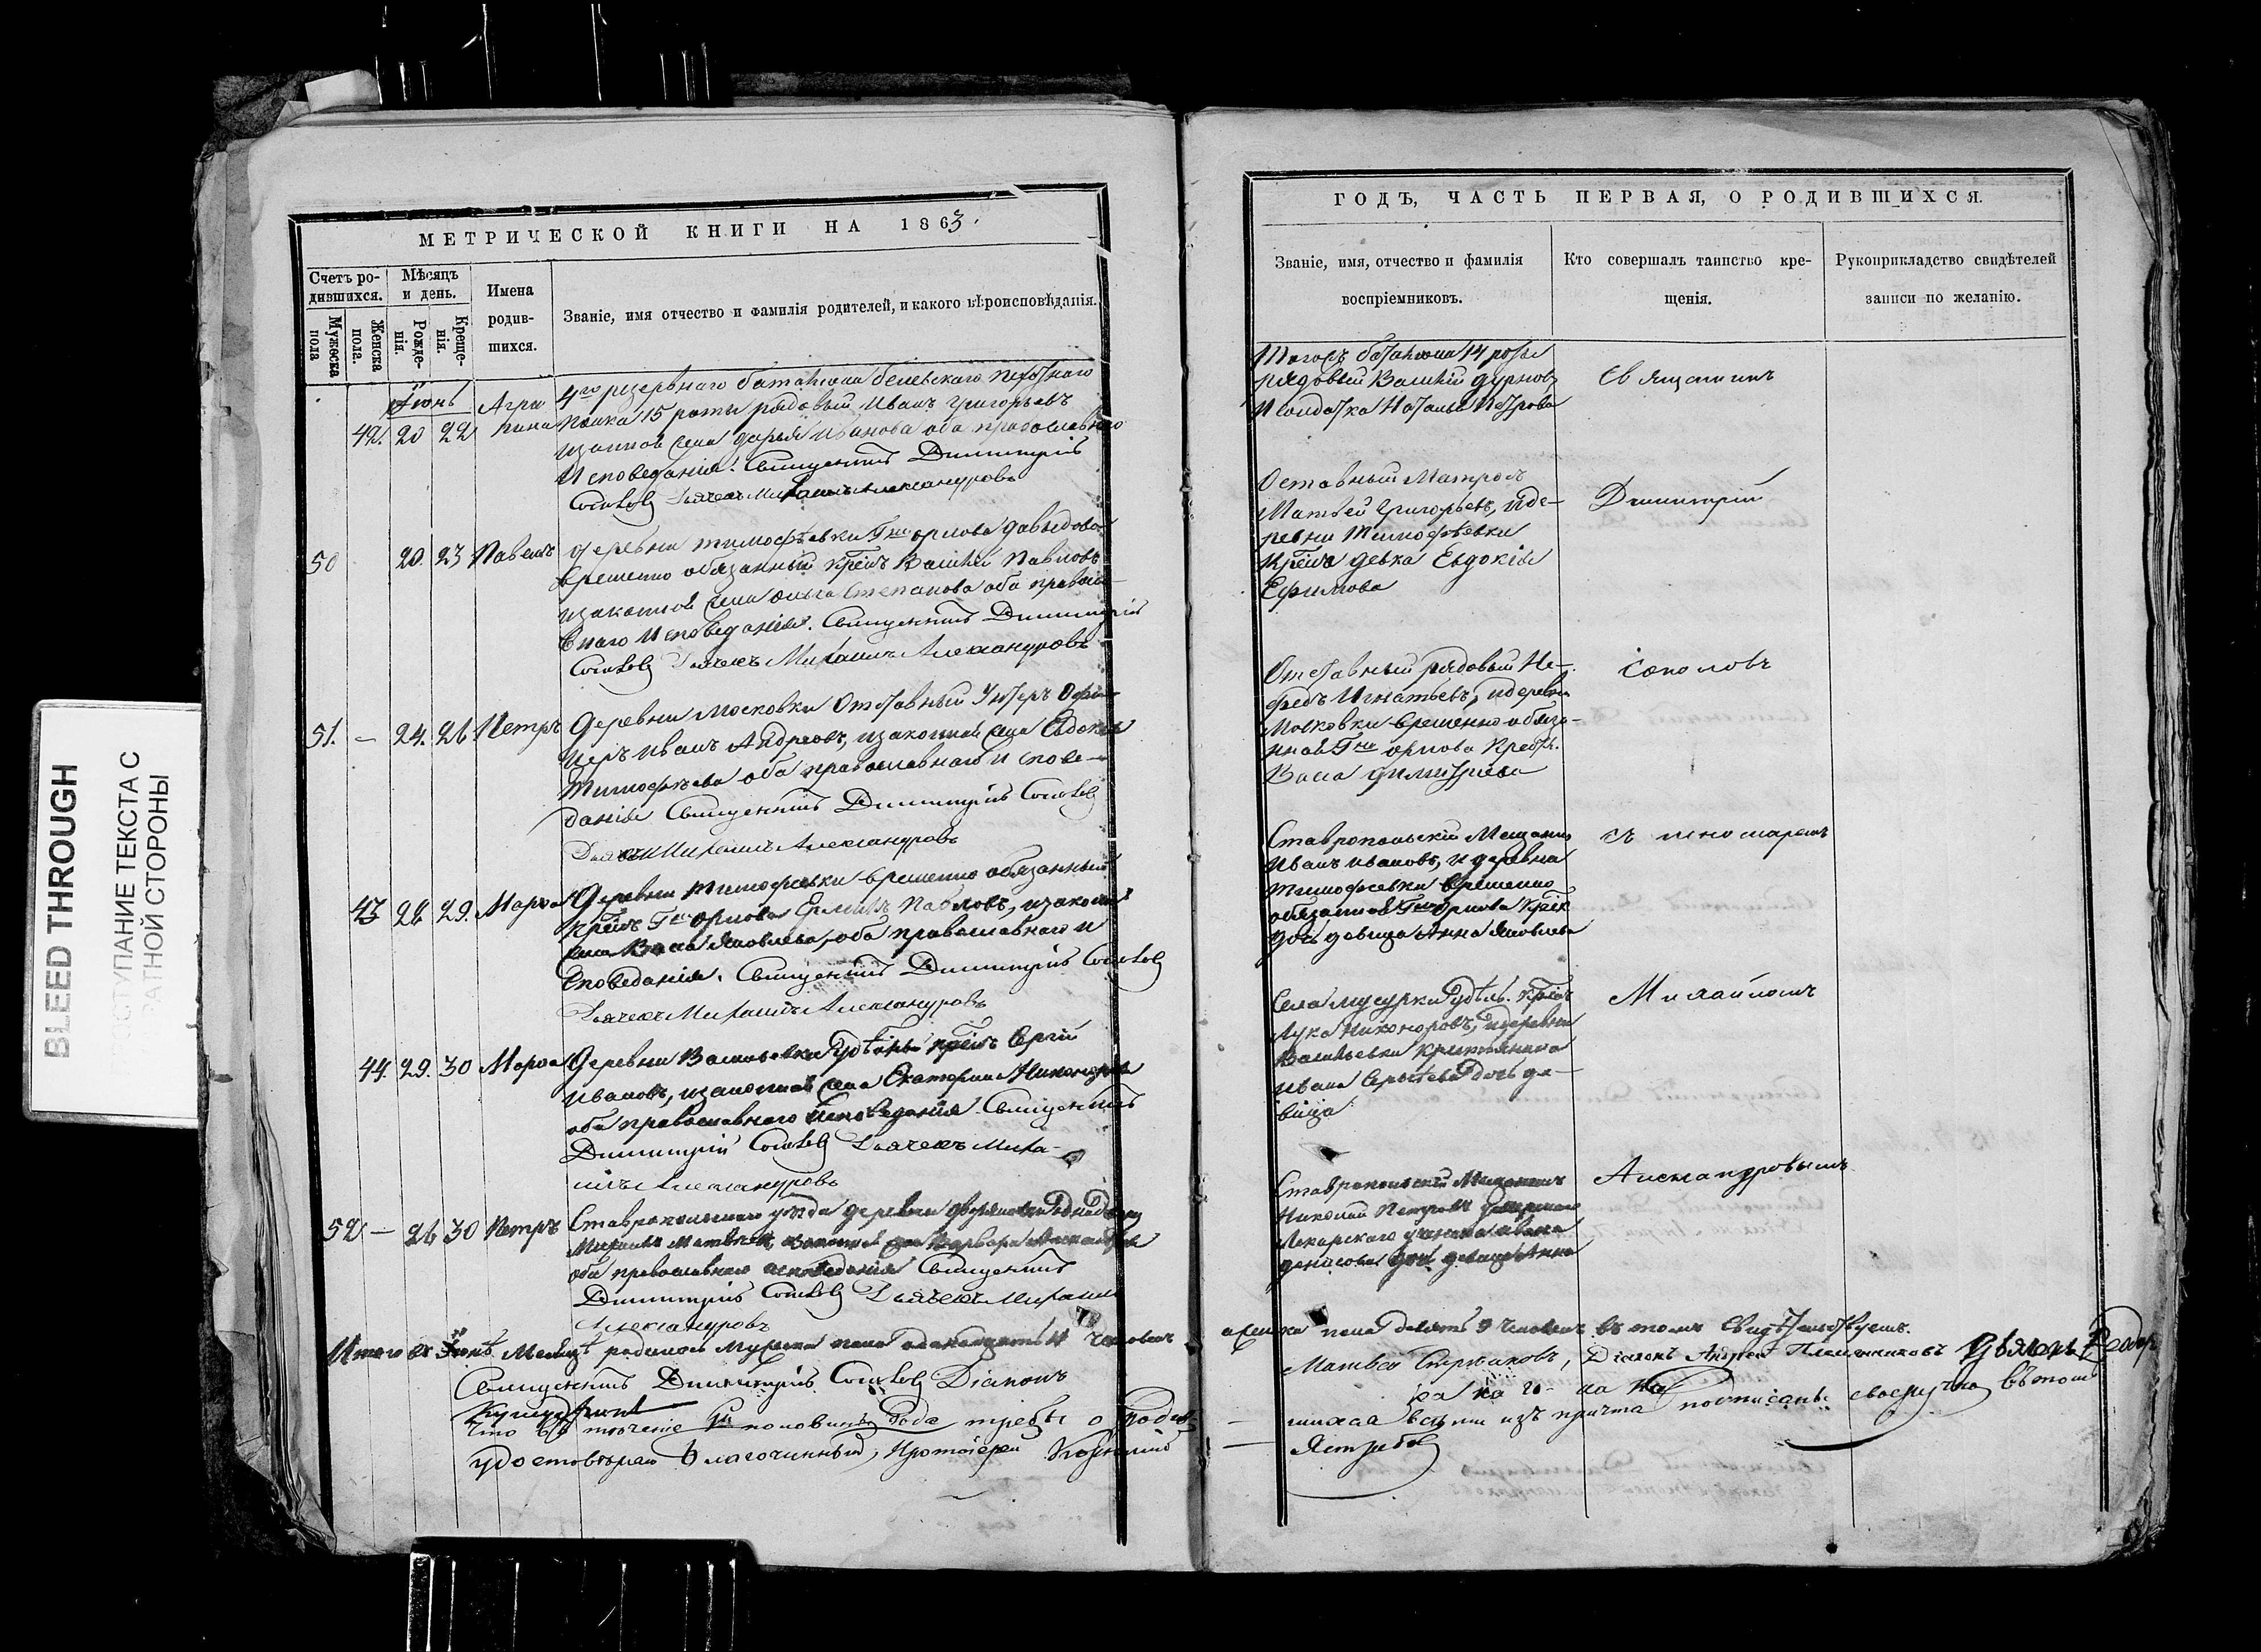 МЕТРИЧЕСКОЙ КНИГИ НА 1863.
Счетъ ро-
дившихся.
Мужеска
пола
Женска
пола.
Мѣсяцъ
и день.
Рожде-
нія.
Креще-
нія.
Имена
родив-
шихся.
Званіе, имя отчество и фамилія родителей, и какого вѣроисповѣданія.
Іюнь
42. 20 22
Агри
пина
4го резервнаго баталіона Белевскаго пехотнаго
полка 15 роты рядовый Иванъ Григорьевъ
изаконной жена Дарья Иванова оба православнаго
Исповеданія. Священникъ Димитрій
Соколов Дьячекъ Михаилъ Александровъ
50 20. 23 Павелъ
деревни Тимофѣевки Гна Орлова Давыдова
временно обязанный крест. Василій Павловъ
изаконной жена Ольга Степанова оба правосла-
внаго Исповеданія. Священникъ Димитрій
Соколов Дьячекъ Михаилъ Александровъ
51. — 24. 26 Петръ
Деревни Московки Отставный Унтеръ Офи-
церъ Иванъ Андреевъ, изаконной жена Евдокия
Тимофѣева оба православнаго Испове-
данія Священникъ Димитрій Соколов
Дьячекъ Михаилъ Александровъ
43 28. 29. Марѳа
Деревни Тимофеевки временно обязанный
крест. Гна Орлова Ермилъ Павловъ, изаконной
жена Васа Яковлева, оба православнаго и
споведанія. Священникъ Димитрій Соколов
Дьячекъ Михаилъ Александровъ
44. 29. 30 Марѳа
Деревни Васильевки Удѣлны крест. Сергій
Ивановъ, изаконной жена Екатерина
оба православнаго Исповеданія. Священникъ
Димитрій Соколов Дьячекъ Миха-
илъ Александровъ
52 — 26 30 Петръ
Ставропольскаго уѣзда деревни
Михаилъ Матвеев, законной жена Варвара
оба православнаго исповеданія Священникъ
Димитрій Соколов Дьячекъ Михаилъ
Александровъ
Итого въ Іюнѣ Месяцѣ родилось Мужеска пола одинадцать 11 человекъ
Священникъ Димитрій Соколов Діаконъ
что въ теченіе 1й половины Года требы о Родив-
удостовѣряю Благочинный, Протоіерей
ГОДЪ, ЧАСТЬ ПЕРВАЯ, О РОДИВШИХСЯ.
Званіе, имя, отчество и фамилія
воспріемниковъ.
Кто совершалъ таинство кре-
щенія.
Рукоприкладство свидѣтелей
записи по желанію.
Тогожъ баталіона 14 роты
рядовый Василій Дурновъ
Исолдатка Наталья Петрова
Священникъ
Отставный Матросъ
Матвей Григорьевъ, Иде-
ревни Тимофѣевки
Крест. девка Евдокія
Ефимова
Димитрій
Отставный рядовый Не-
федъ Игнатьевъ, Идеревни
Московки временно обяза-
нной Гна Орлова Крест.
Васа Димитріева
Соколовъ
Ставропольскій Мещанинъ
Иванъ Ивановъ, и деревни
Тимофеевки временно
обязанной Гна Орлова Крест.
дочь девица Анна Яковлева
съ пономаремъ
Села Мусурки Удѣль. Крест.
Лука Никоноровъ, Идеревни
Васильевки Крестьянина
Ивана Сергѣева Дочь де-
вица
Михайломъ
Ставропольскій Мещанинъ
Николай Петровъ
Лекарскаго ученика Ивана
Денисова дочь девица Анна
Александровымъ
аженска пола девять 9 человекъ въ томъ свидѣтельствуемъ.
Матвей Стержаковъ, Діаконъ Андрей Племянниковъ Дьячекъ Ѳедор
шихся всѣми изъ причта подписаны своеручно въ томъ
Ястребов
BLEED THROUGH
СТУПАНИЕ ТЕКСТА С
РАТНОЙ СТОРОНЫ